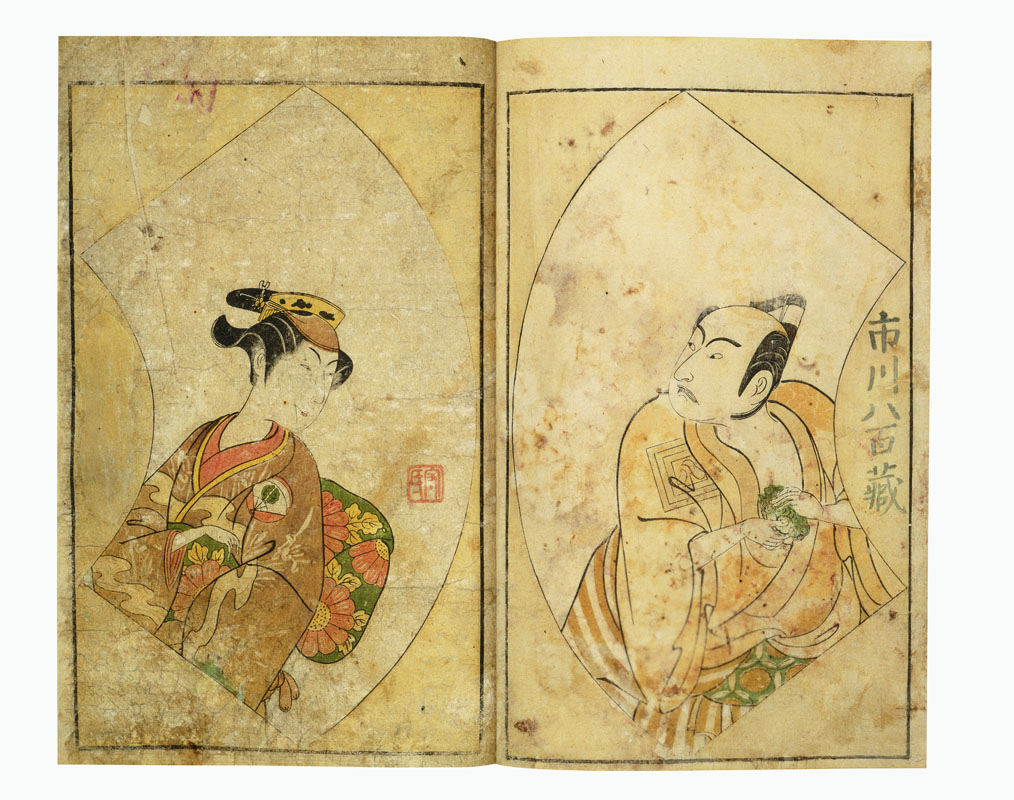 市川八百藏